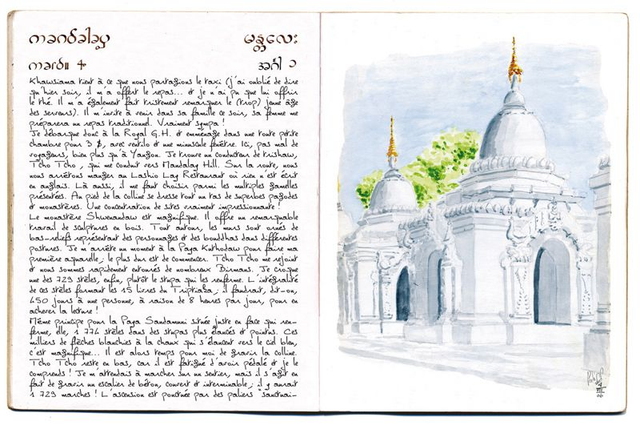 mandalay မန္တလေး
mardi 4
Khawsiama tient à ce que nous partagions le taxi (j'ai oublié de dire
qu'hier soir, il m'a offert le repas... et je n'ai pu que lui offrir
le thé. Il m'a également fait tristement remarquer le (trop) jeune âge
des serveurs). Il m'invite à venir dans sa famille ce soir, sa femme me
préparera un repas traditionnel. Vraiment sympa !
Je débarque donc à la Royal G.H. et emménage dans une toute petite
chambre pour 3 $, avec ventilo et une minuscule fenêtre. Ici, pas mal de
voyageurs, bien plus qu'à Yangon. Je trouve un conducteur de trishaw,
Tcho Tcho, qui me conduit vers Mandalay Hill. Sur la route, nous
nous arrêtons manger au Lashio Lay Restaurant où rien n'est écrit
en anglais. Là aussi, il me faut choisir parmi les multiples gamelles
présentées. Au pied de la colline se dresse tout un tas de superbes pagodes
et monastères. Une concentration de sites vraiment impressionnante !
Le monastère Shwenandaw est magnifique. Il offre un remarquable
travail de sculptures en bois. Tout autour, les murs sont ornés de
bas-reliefs représentant des personnages et des bouddhas dans différentes
postures. Je m'arrête un moment à la Paya Kuthodaw pour faire ma
première aquarelle, le plus dur est de commencer. Tcho Tcho me rejoint
et nous sommes rapidement entourés de nombreux Birmans. Je croque
une des 729 stèles, enfin, plutôt le stupa qui les renferme. L'intégralité
de ces stèles formant les 15 livres du Tripitaka, il faudrait, dit-on,
450 jours à une personne, à raison de 8 heures par jour, pour en
achever la lecture !
Même principe pour la Paya Sandamuni située juste en face qui ren-
ferme, elle, 1 774 stèles dans des stupas plus élancés et pointus. Ces
milliers de flèches blanchies à la chaux qui s'élancent vers le ciel bleu,
c'est magnifique... Il est alors temps pour moi de gravir la colline.
Tcho Tcho reste en bas, car il est fatigué d'avoir pédalé et je le
comprends ! Je m'attendais à marcher sur un sentier, mais il s'agit en
fait de gravir un escalier de béton, couvert et interminable ; il y aurait
1 729 marches ! L'ascension est ponctuée par des paliers "sanctuai-